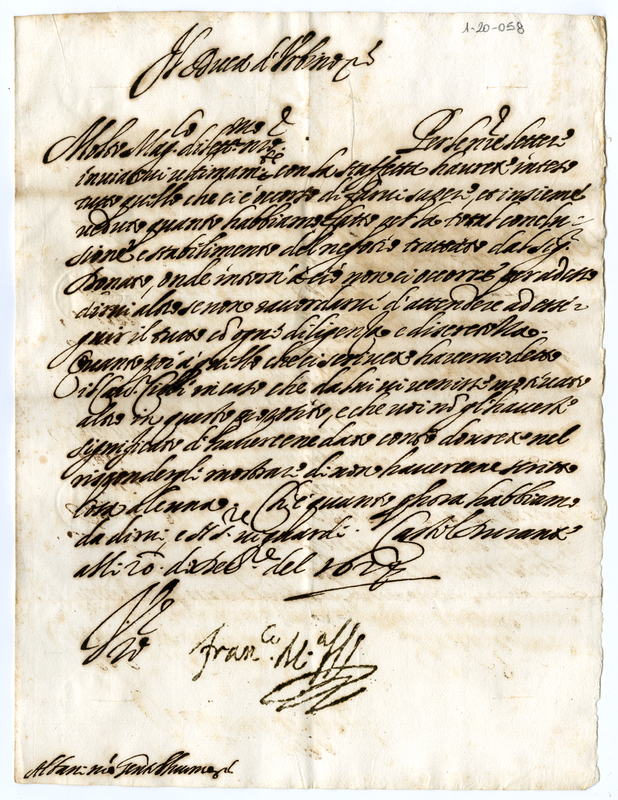 1-20-058
Il Duca d'Urbino
Molto Mag.co diletmo nro. Per le nre lettere
inviatevi ultimam.te con la staffetta haurete inteso
tutto quello che ci è occorso di farvi sapere, et insieme
veduto quanto habbiamo fatto per la total conclu-
sione e stabilimento del negotio trattato dal Sig.r
Donato, onde intorno à ciò non ci occorre per adesso
dirvi altro se non raccordarvi d'attendere ad esse-
guir il tutto cō ogni diligenza e discretezza.
Quanto poi à quello che ci scrivete havervi detto
il in caso che da lui vi venisse motivato
altro in questo proposito, e che voi nō gl'haveste
significato d'havercene dato conto dourete nel
rispondergli mostrar di non havercene scritto
cosa alcuna. Ch'è quanto p hora habbiamo
da dirvi, e N. S.re vi guardi. Castel Durante
alli 20. di del 162
Fran.co M.a